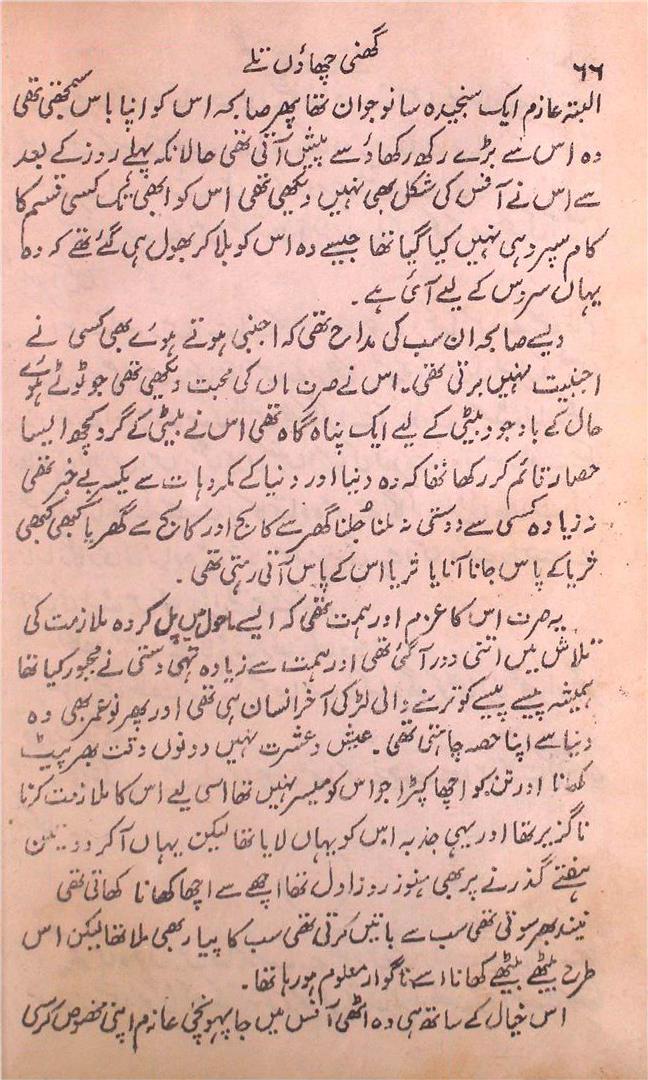 گھنی چھاؤں تلے
۶۶
البتہ عازم ایک سنجیدہ سا نوجوان تھا پھر صابحہ اس کو اپنا باس سمجھتی تھی
وہ اس سے بڑے رکھ رکھاؤ سے پیش آتی تھی حالانکہ پہلے روز کے بعد
سے اس نے آفس کی شکل بھی نہیں دیکھی تھی اس کو ابھی تک کسی قسم کا
کام سپرد ہی نہیں کیا گیا تھا جیسے وہ اس کو بلا کر بھول ہی گئے تھے کہ وہ
یہاں سروس کے لیے آئی ہے ۔
ویسے صابحہ ان سب کی مداح تھی کہ اجنبی ہوتے ہوئے بھی کسی نے
اجنبیت نہیں برتی تھی ۔ اس نے صرف ماں کی محبت دیکھی تھی جو ٹوٹے ہوئے
حال کے باوجود بیٹی کے لیے ایک پناہ گاہ تھی اس نے بیٹی کے گرد کچھ ایسا
حصار قائم کر رکھا تھا کہ وہ دنیا اور دنیا کے مکروہات سے یکسر بے خبر تھی
نہ زیادہ کسی سے دوستی نہ ملنا جُلنا گھر سے کالج اور کالج سے گھر یا کبھی کبھی
ثریا کے پاس جانا آنا یا ثریا اس کے پاس آتی رہتی تھی ۔
یہ صرف اس کا عزم اور ہمت تھی کہ ایسے ماحول میں پل کر وہ ملازمت کی
تلاش میں اتنی دور آگئی تھی اور ہمت سے زیادہ تہی دستی نے مجبور کیا تھا
ہمیشہ پیسے پیسے کو ترسنے والی لڑکی آخر انسان ہی تھی اور پھر نو عمر بھی وہ
دنیا سے اپنا حصہ چاہتی تھی ۔ عیش و عشرت نہیں دونوں وقت بھر پیٹ
کھانا اور تن کو اچھا کپڑا جو اس کو میسر نہیں تھا اسی لیے اس کا ملازمت کرنا
ناگزیر تھا اور یہی جذبہ اس کو یہاں لایا تھا لیکن یہاں آکر دو تین
ہفتے گذرنے پر بھی ہنوز روز اول تھا اچھے سے اچھا کھانا کھاتی تھی
نیند بھر سوتی تھی سب سے باتیں کرتی تھی سب کا پیار بھی ملا تھا لیکن اس
طرح بیٹھے بیٹھے کھانا اسے ناگوار معلوم ہو رہا تھا ۔
اس خیال کے ساتھ ہی وہ اٹھی آفس میں جا پہونچی عازم اپنی مخصوص کرسی